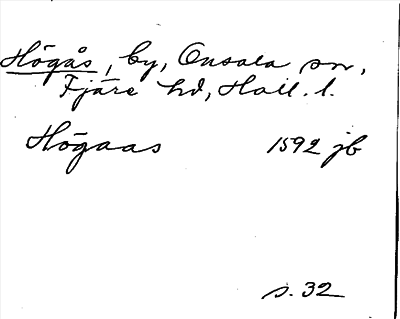 Högås, by, Onsala sn,
Fjäre hd, Hall. l.
Högaas 1592 jb
s. 32